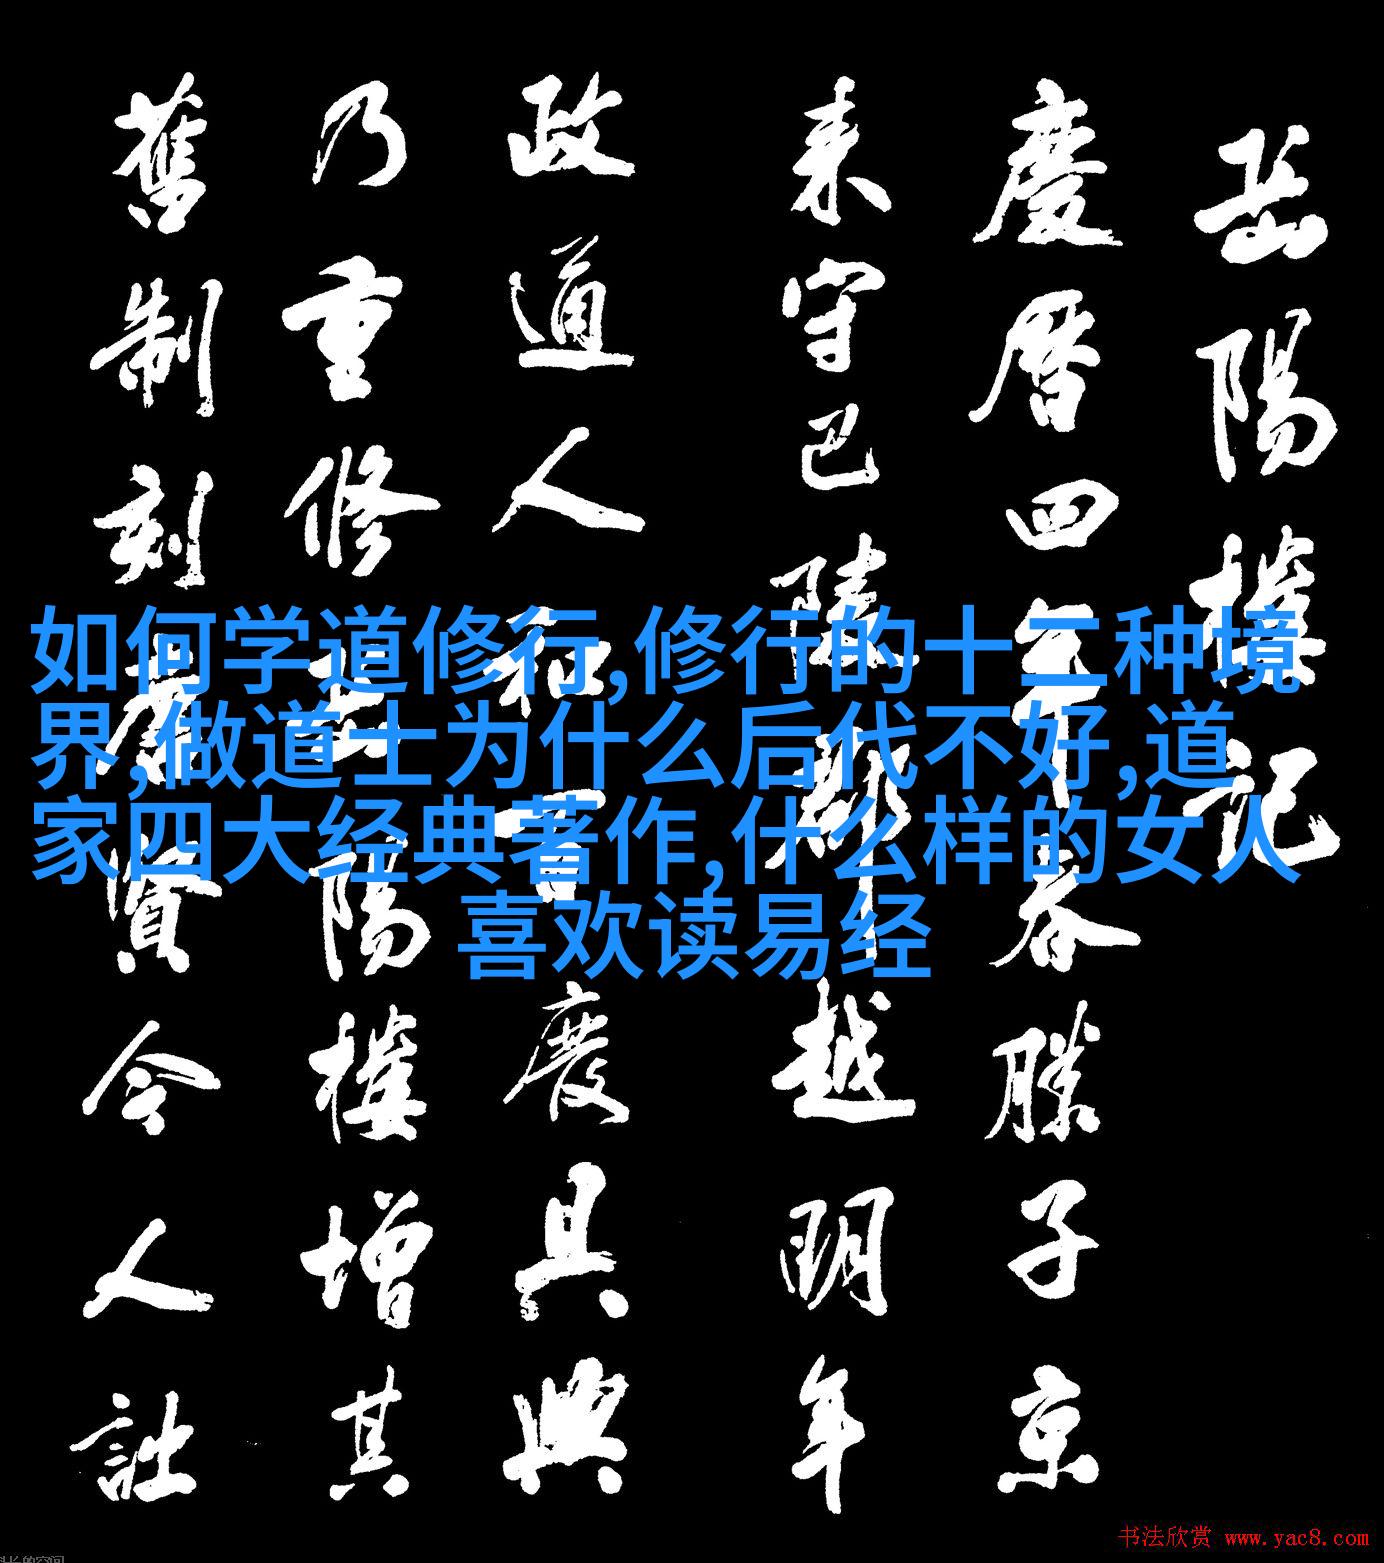 岳陽樓記
慶曆四年春滕子京
来守巴陵郡越明年
政通人和百廢具興
乃重修岳陽樓增其
舊制刻唐賢今人詩
如何学道修行,修行的十二种境
界,做道士为什么后代不好,道
家四大经典著作,什么样的女人
喜欢读易经
书法欣赏 www.yac8.com